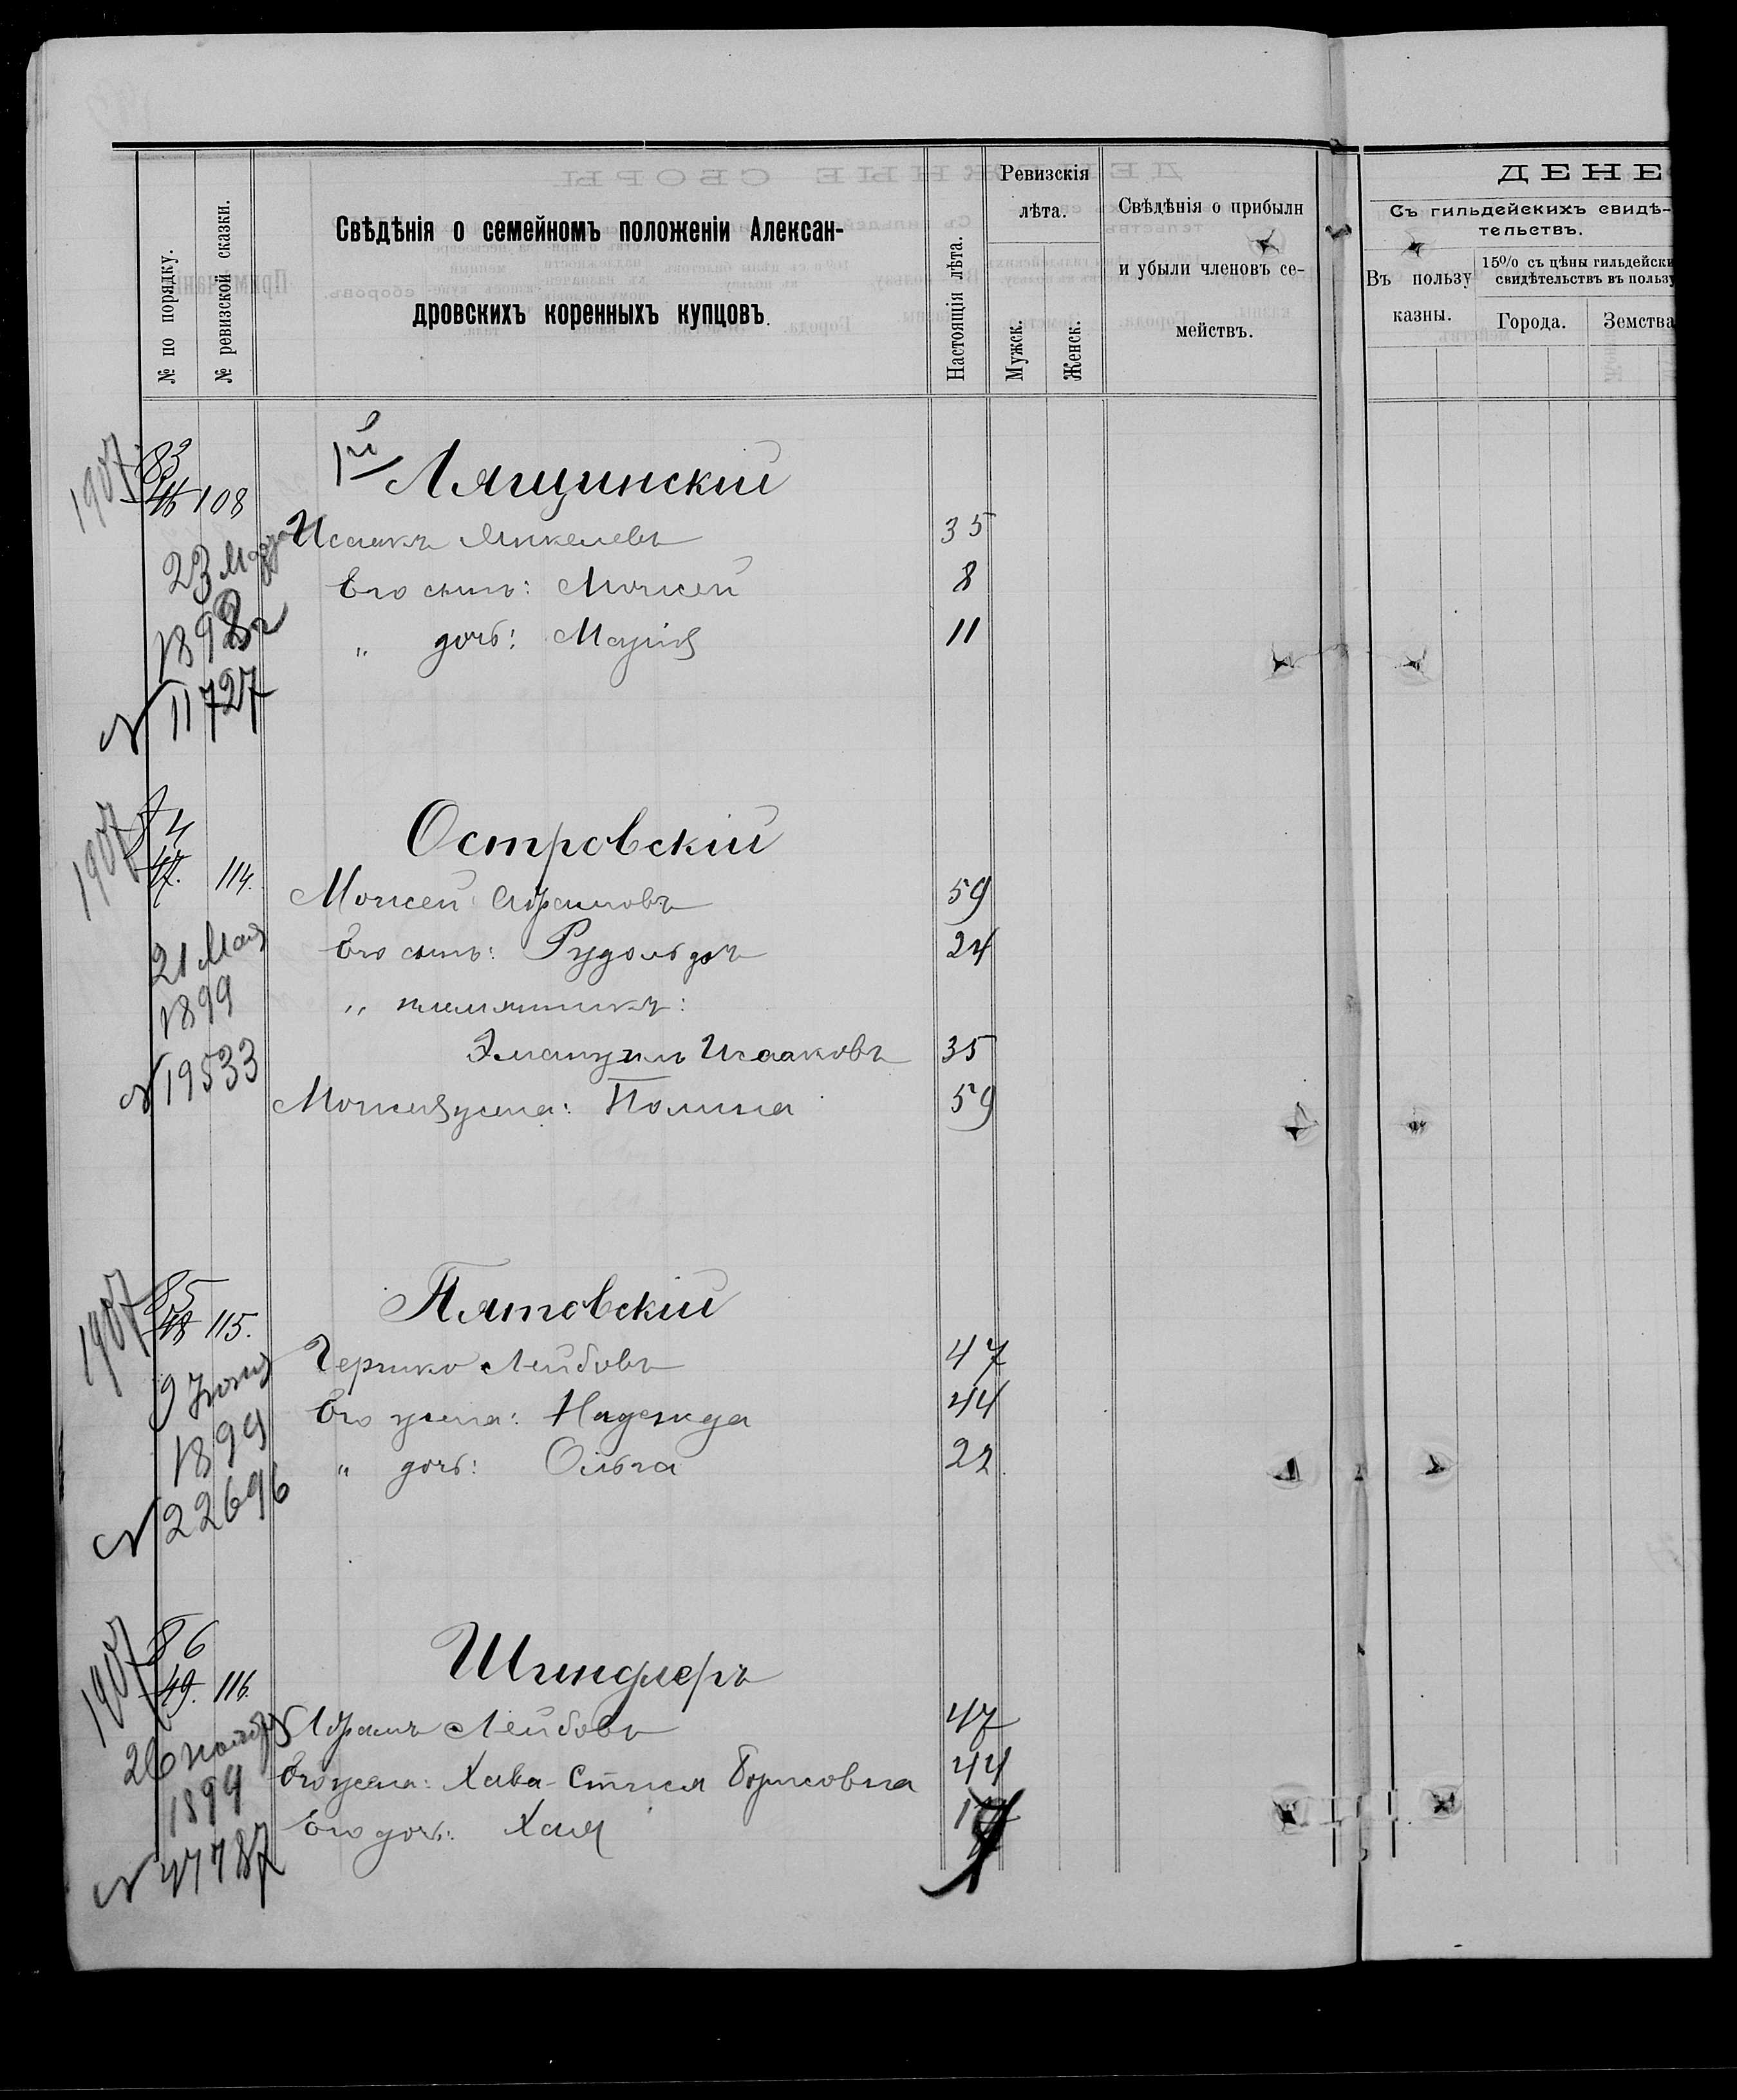 № по порядку.
№ ревизской сказки.
Свѣдѣнія о семейномъ положеніи Алексан-
дровскихъ коренныхъ купцовъ.
Настоящія лѣта.
Ревизскія
лѣта.
Мужск.
Женск.
Свѣдѣнія о прибыли
и убыли членовъ се-
мействъ.
ДЕНЕ
Съ гильдейскихъ свидѣ-
тельствъ.
Въ пользу
казны.
15% съ цѣны гильдейски
свидѣтельствъ въ пользу
Города.
Земства
1907
83
46 108
1й Лящинскій
Исаакъ Янкелевъ 35
Его сынъ: Моисей 8
" дочь: Марія 11
23
189
№ 11727
1907
84
47. 114.
Островскій
Моисей Абрамовъ 59
Его сынъ: Рудольфъ 24
" племянникъ:
Эмануилъ Исааковъ 35
Моисея жена: Полина 59
21 Мая
1899
№ 19533
1907
85
48 115.
Пятовскій
Гершко Лейбовъ 47
Его жена: Надежда 44
" дочь: Ольга 22
9 Іюня
1899
№ 22696
1907
86
49. 116.
Шиндлеръ
Абрамъ Лейбовъ 47
Его жена: Хава-Стися Борисовна 44
Его дочь: Хая
26 ноября
1899
№ 47787